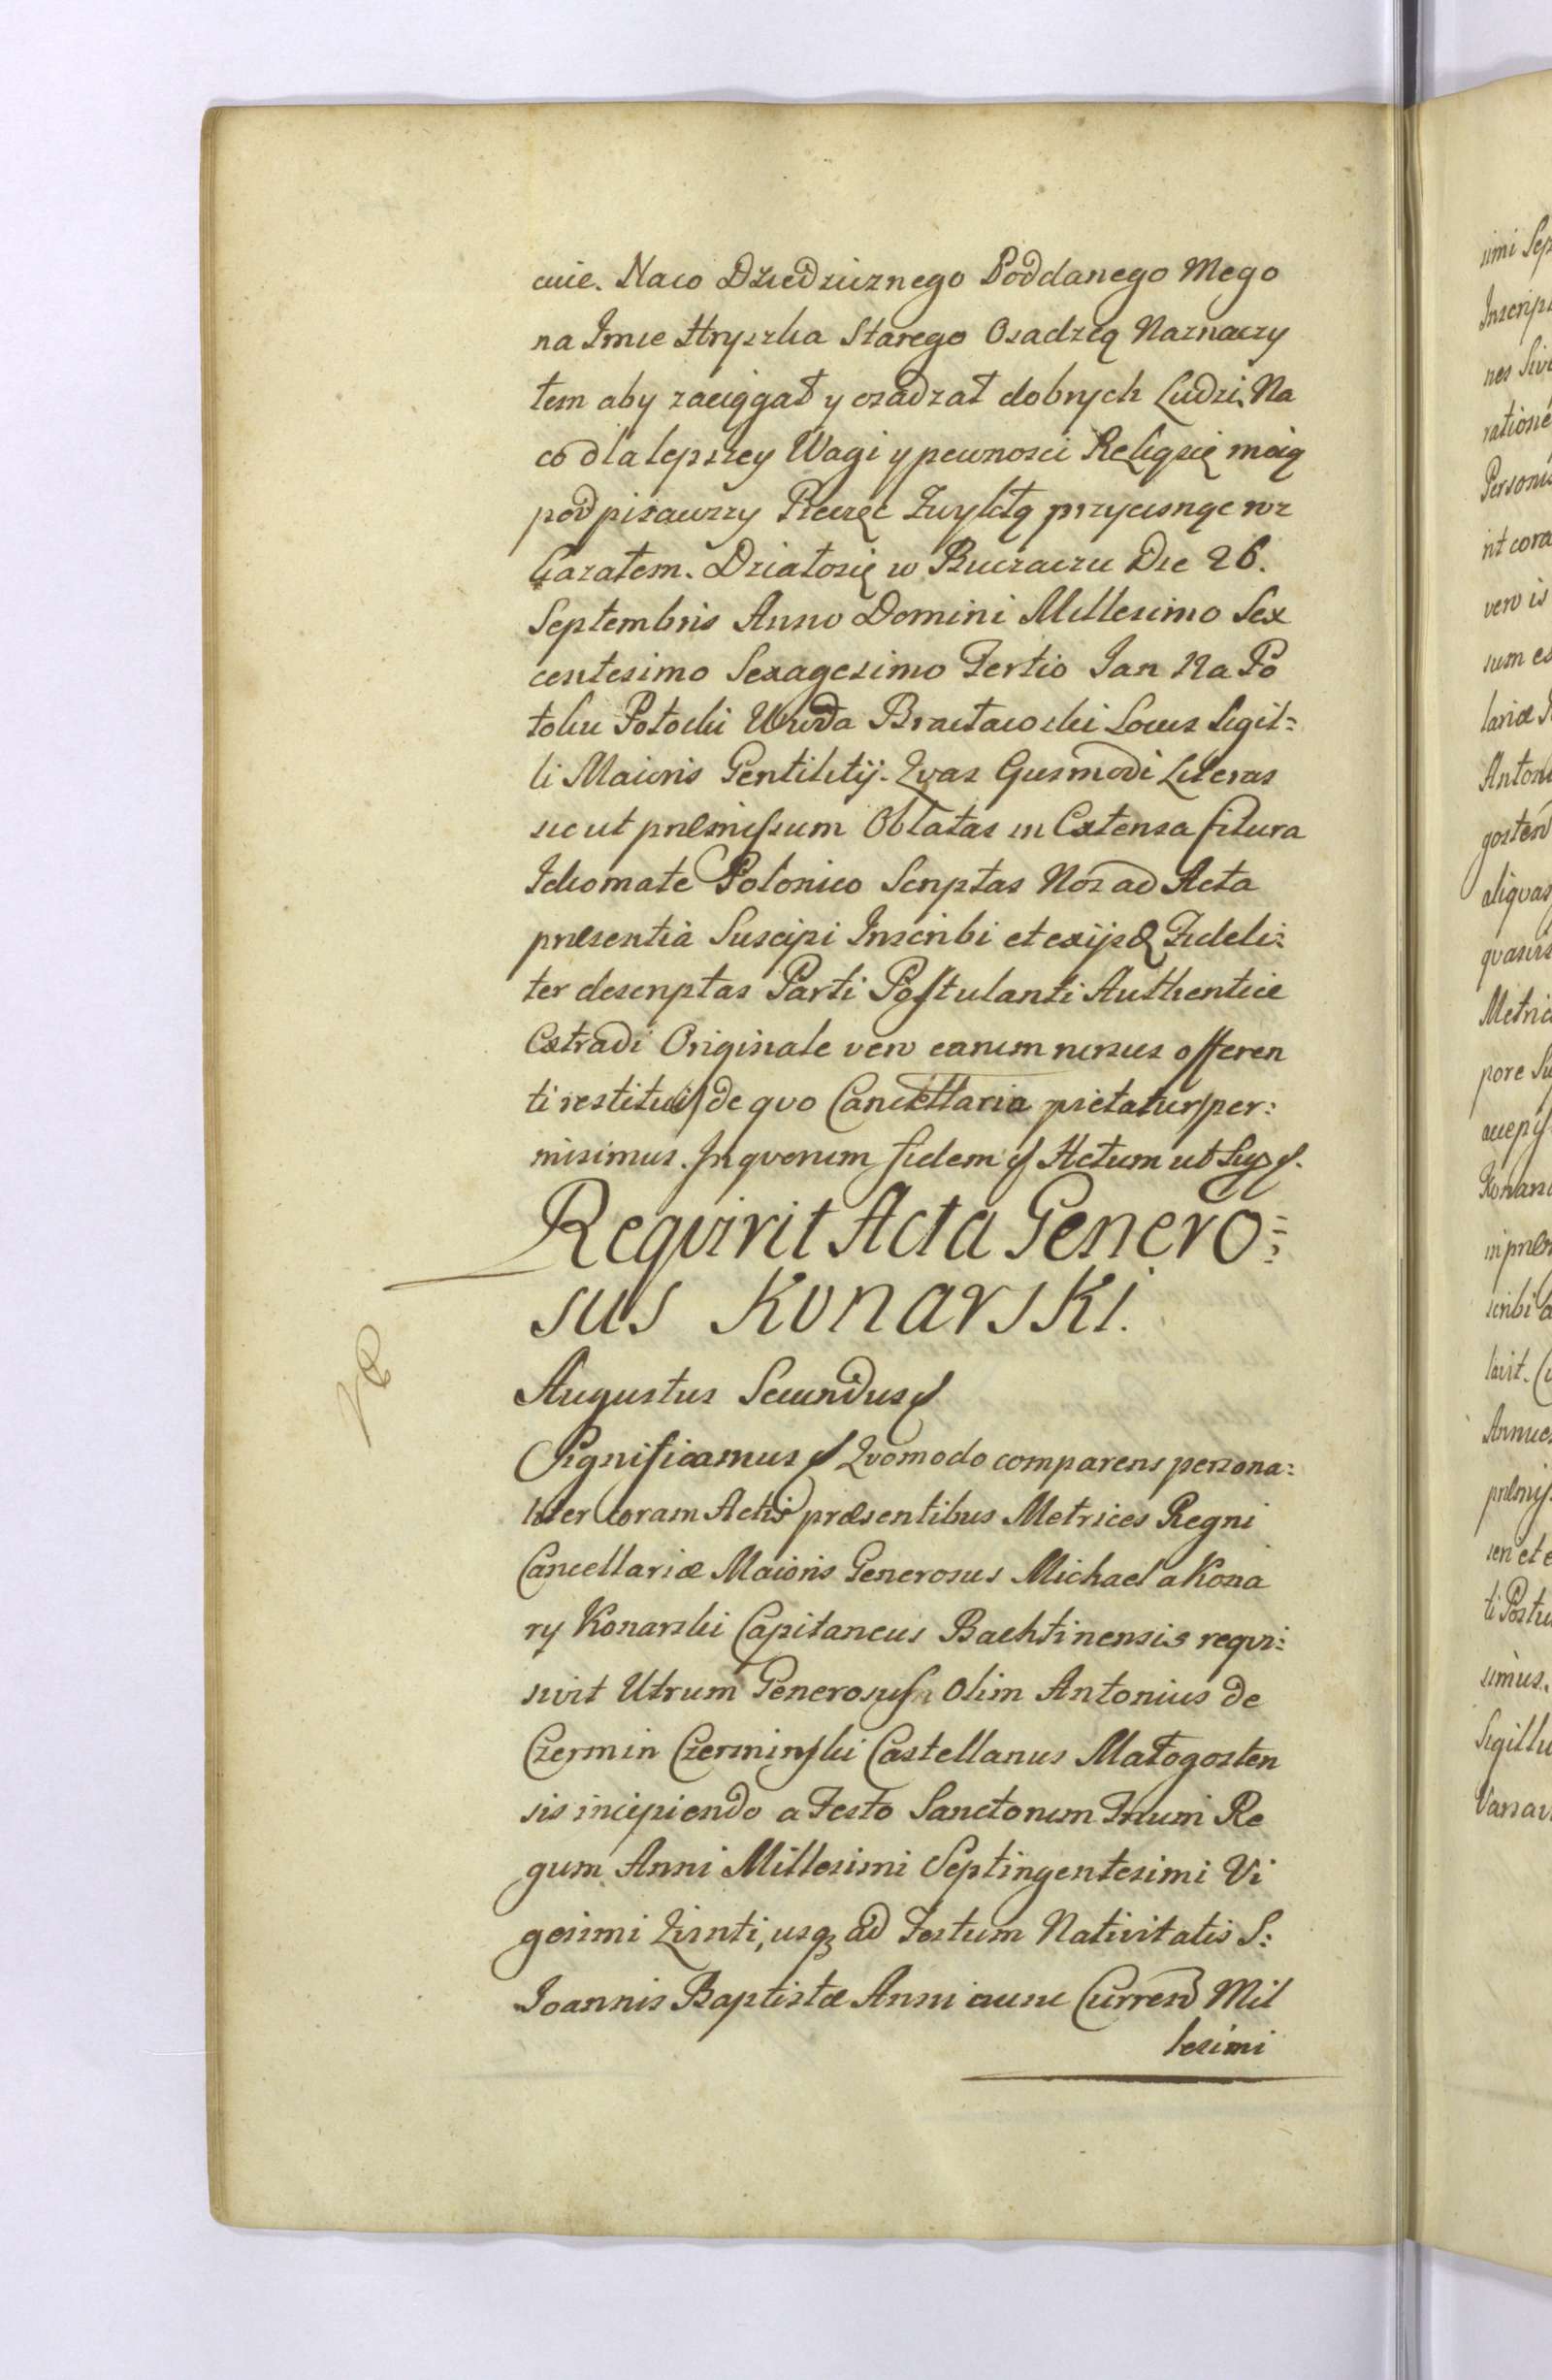 cuie. Naco Dziedzicznego Poddanego Mego
na Imie Hryszka Starego Osadzcą Naznaczy
łem aby zaciągał y osadzał dobrych Ludzi. Na
co dla lepszey Wagi y pewnosci Ręką się moią
podpisawszy Pieczęc Zwykłą przycisnąc roz
kazałem. Działosię w Buczaczu Die 26.
Septembris Anno Domini Millesimo Sex
centesimo Sexagesimo Tertio Jan Na Po
toku Potocki Wwda Bracławski Locus Sigil=
li Maioris Gentilitij. Qvas Gusmodi Literas
sicut præmissum Oblatas in Extensa
Idiomate Polonico Scriptas Nos ad Acta
præsentia Suscipi Inscribi et exijsq Fideli=
ter descriptas Parti Postulanti Authentice
Extradi Originale vero earum rursus offeren
ti restitui de quo Cancellaria qvietatur per:
misimus. In qvorum fidem Actum ut Sup.
Reqvirit Acta Genero=
sus Konarski.
Augustus Secundus
Significamus Qvomodo comparens persona:
liter coram Actis præsentibus Metrices Regni
Cancellariæ Maioris Generosus Michael a Kona
ry Konarski Capitaneus Bachtinensis reqvi:
sivit Utrum Generosus Olim Antonius de
Czermin Czerminski Castellanus Małogosten
sis incipiendo a Festo Sanctorum Trium Re
gum Anni Millesimi Septingentesimi Vi
gesimi Qvinti, usq ad Festum Nativitatis S:
Joannis Baptistæ Anni nunc Currend Mil
lesimi
imi Sep
Inscript
nes Sive
ratione
Personis
int cora
vero is
sum es
lariæ
Antoni
gosten
aliqvas
qvasvis
Metric
pore
Konars
scribi
lavit.
Annue
sen et e
ti Postu
simus.
Sigillu
Varsav